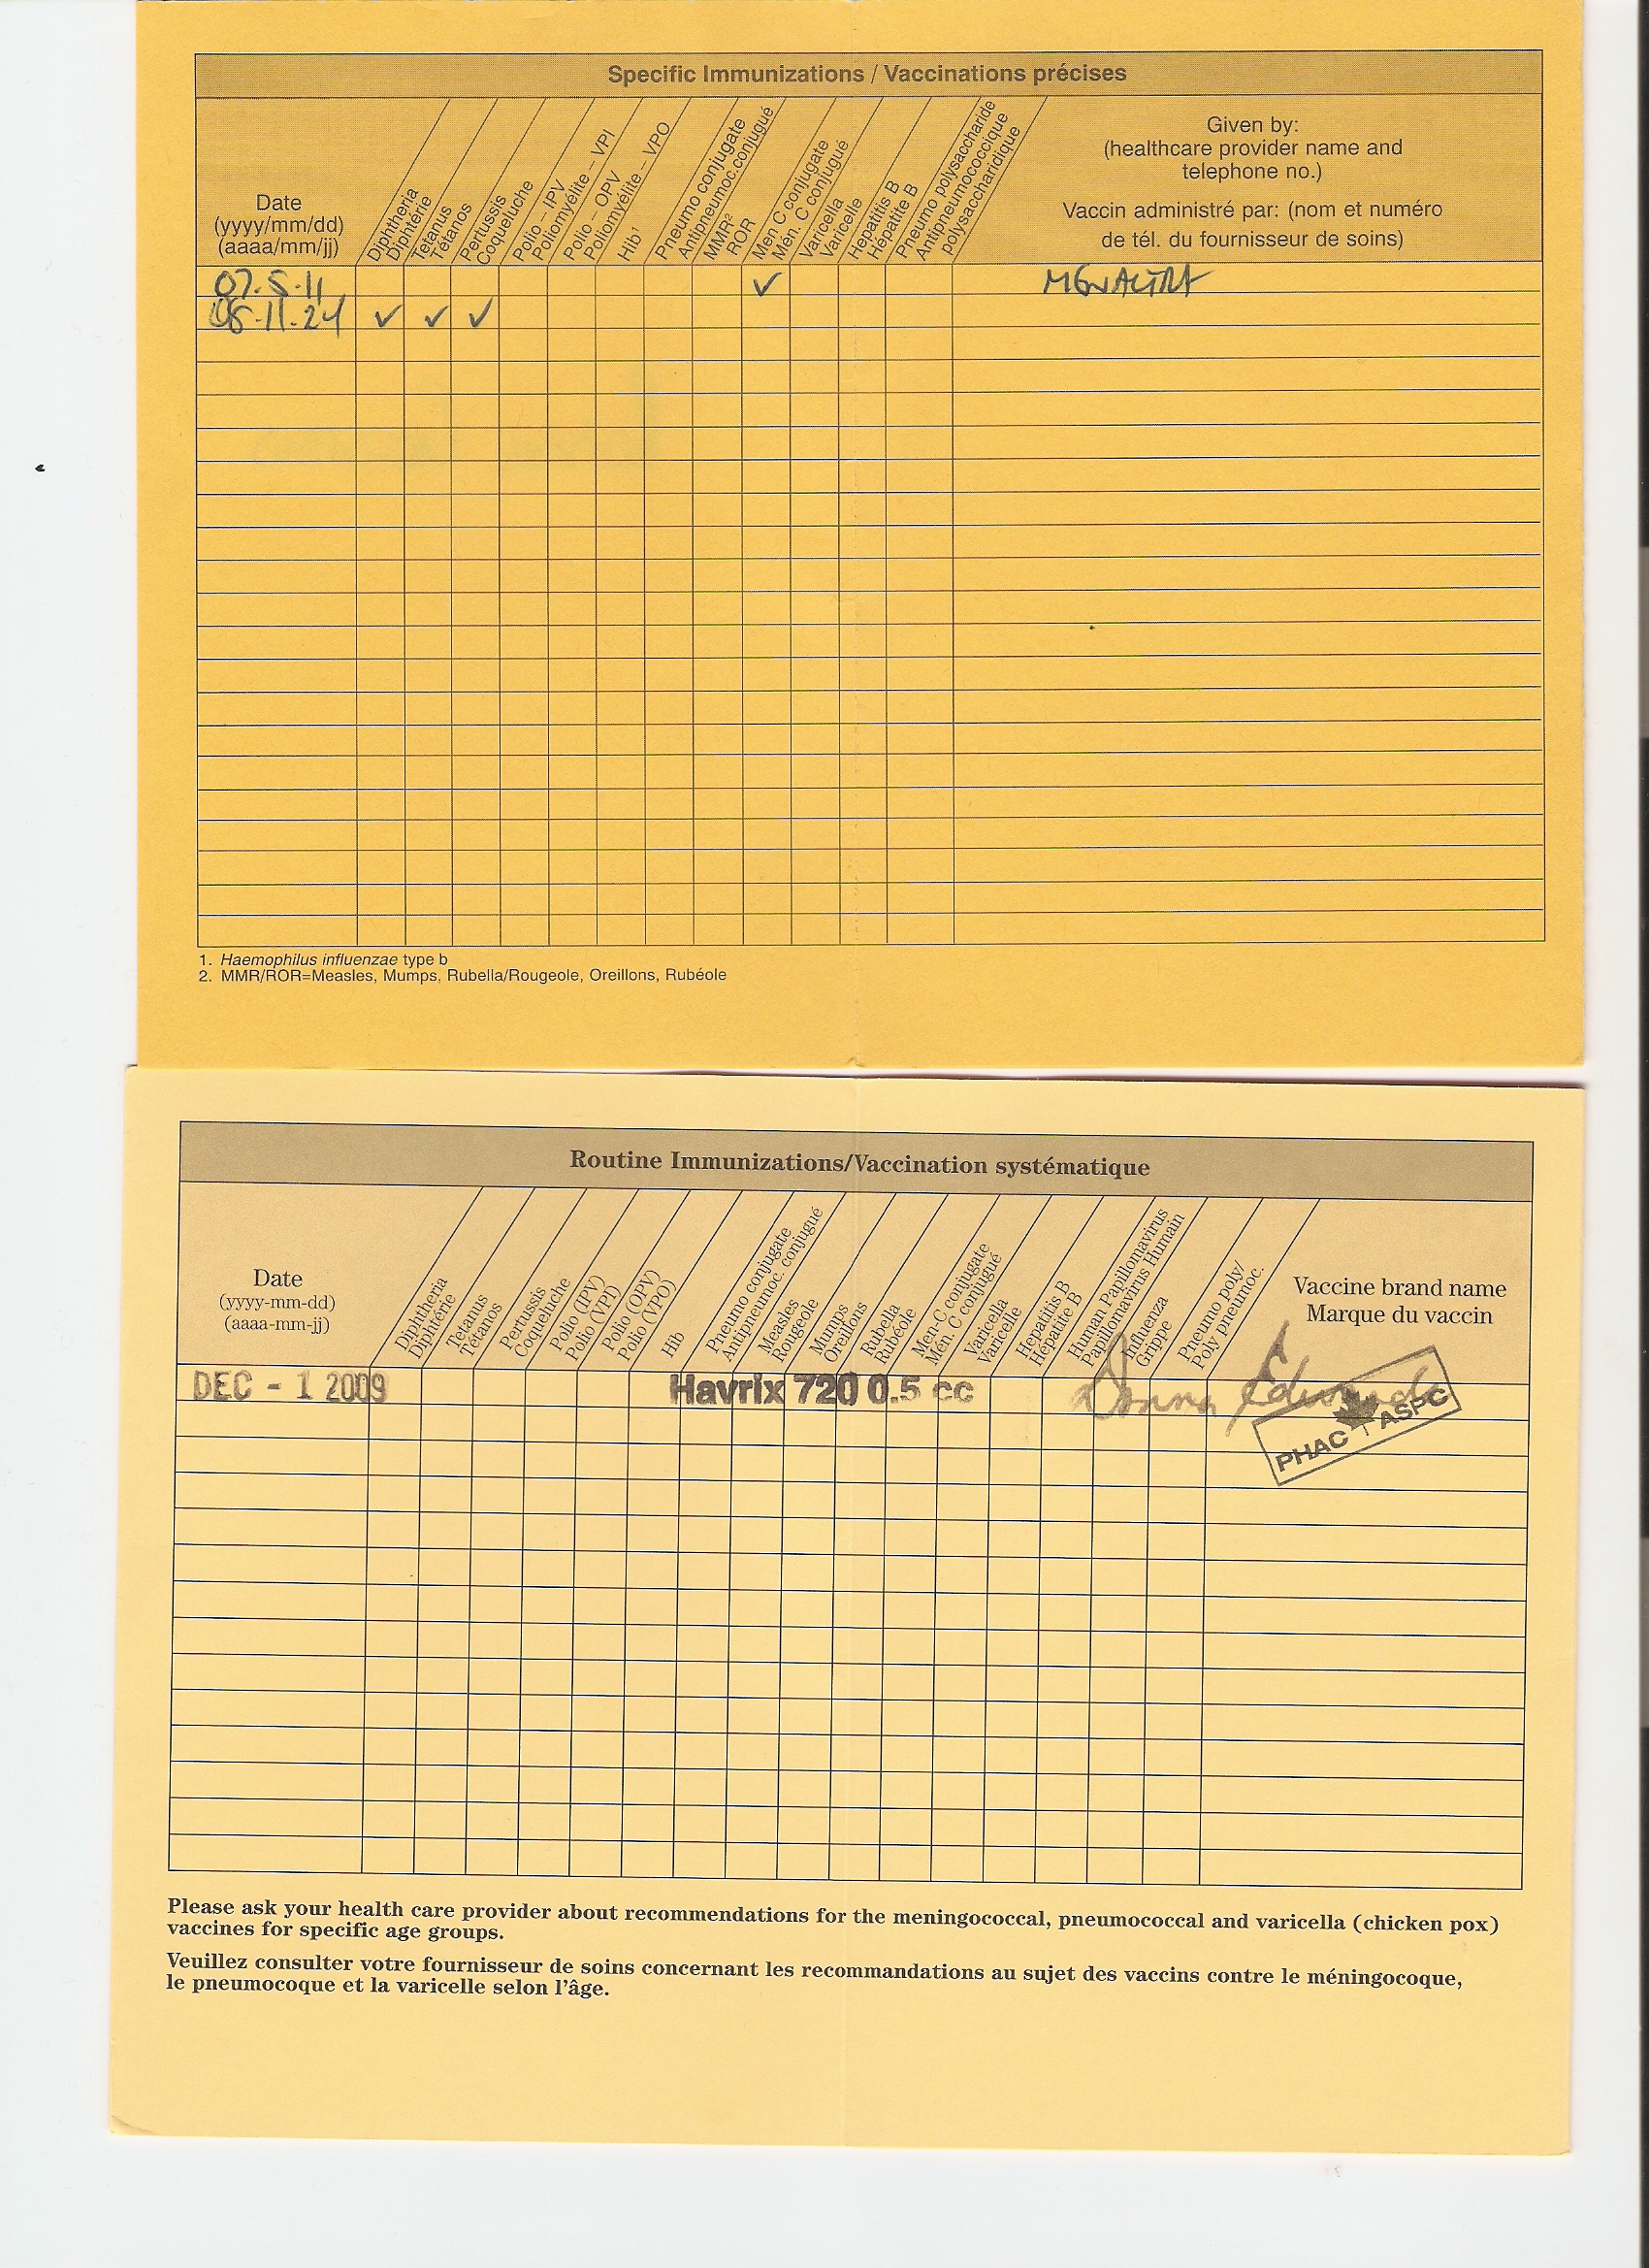 Specific Immunizations / Vaccinations précises
Date
(yyyy/mm/dd)
(aaaa/mm/jj)
Diphtheria
Diphtérie
Tetanus
Tétanos
Pertussis
Coqueluche
Polio – IPV
Poliomyélite – VPI
Polio – OPV
Poliomyélite – VPO
Hib¹
Pneumo conjugate
Antipneumoc.conjugué
MMR²
ROR
Men C conjugate
Mén. C conjugué
Varicella
Varicelle
Hepatitis B
Hépatite B
Pneumo polysaccharide
Antipneumococcique
polysaccharidique
Given by:
(healthcare provider name and
telephone no.)
Vaccin administré par: (nom et numéro
de tél. du fournisseur de soins)
07.5.11 ✓
11.24 ✓ ✓ ✓
1. Haemophilus influenzae type b
2. MMR/ROR=Measles, Mumps, Rubella/Rougeole, Oreillons, Rubéole
Routine Immunizations/Vaccination systématique
Date
(yyyy-mm-dd)
(aaaa-mm-jj)
Diphtheria
Diphtérie
Tetanus
Tétanos
Pertussis
Coqueluche
Polio (IPV)
Polio (VPI)
Polio (OPV)
Polio (VPO)
Hib
Pneumo conjugate
Antipneumoc. conjugué
Measles
Rougeole
Mumps
Oreillons
Rubella
Rubéole
Men-C conjugate
Mén. C conjugué
Varicella
Varicelle
Hepatitis B
Hépatite B
Human Papillomavirus
Papillomavirus Humain
Influenza
Grippe
Pneumo poly/
Poly pneumoc.
Vaccine brand name
Marque du vaccin
DEC - 1 2009 Havrix 720 0.5 cc Donna Edwards
PHAC ASPC
Please ask your health care provider about recommendations for the meningococcal, pneumococcal and varicella (chicken pox)
vaccines for specific age groups.
Veuillez consulter votre fournisseur de soins concernant les recommandations au sujet des vaccins contre le méningocoque,
le pneumocoque et la varicelle selon l'âge.